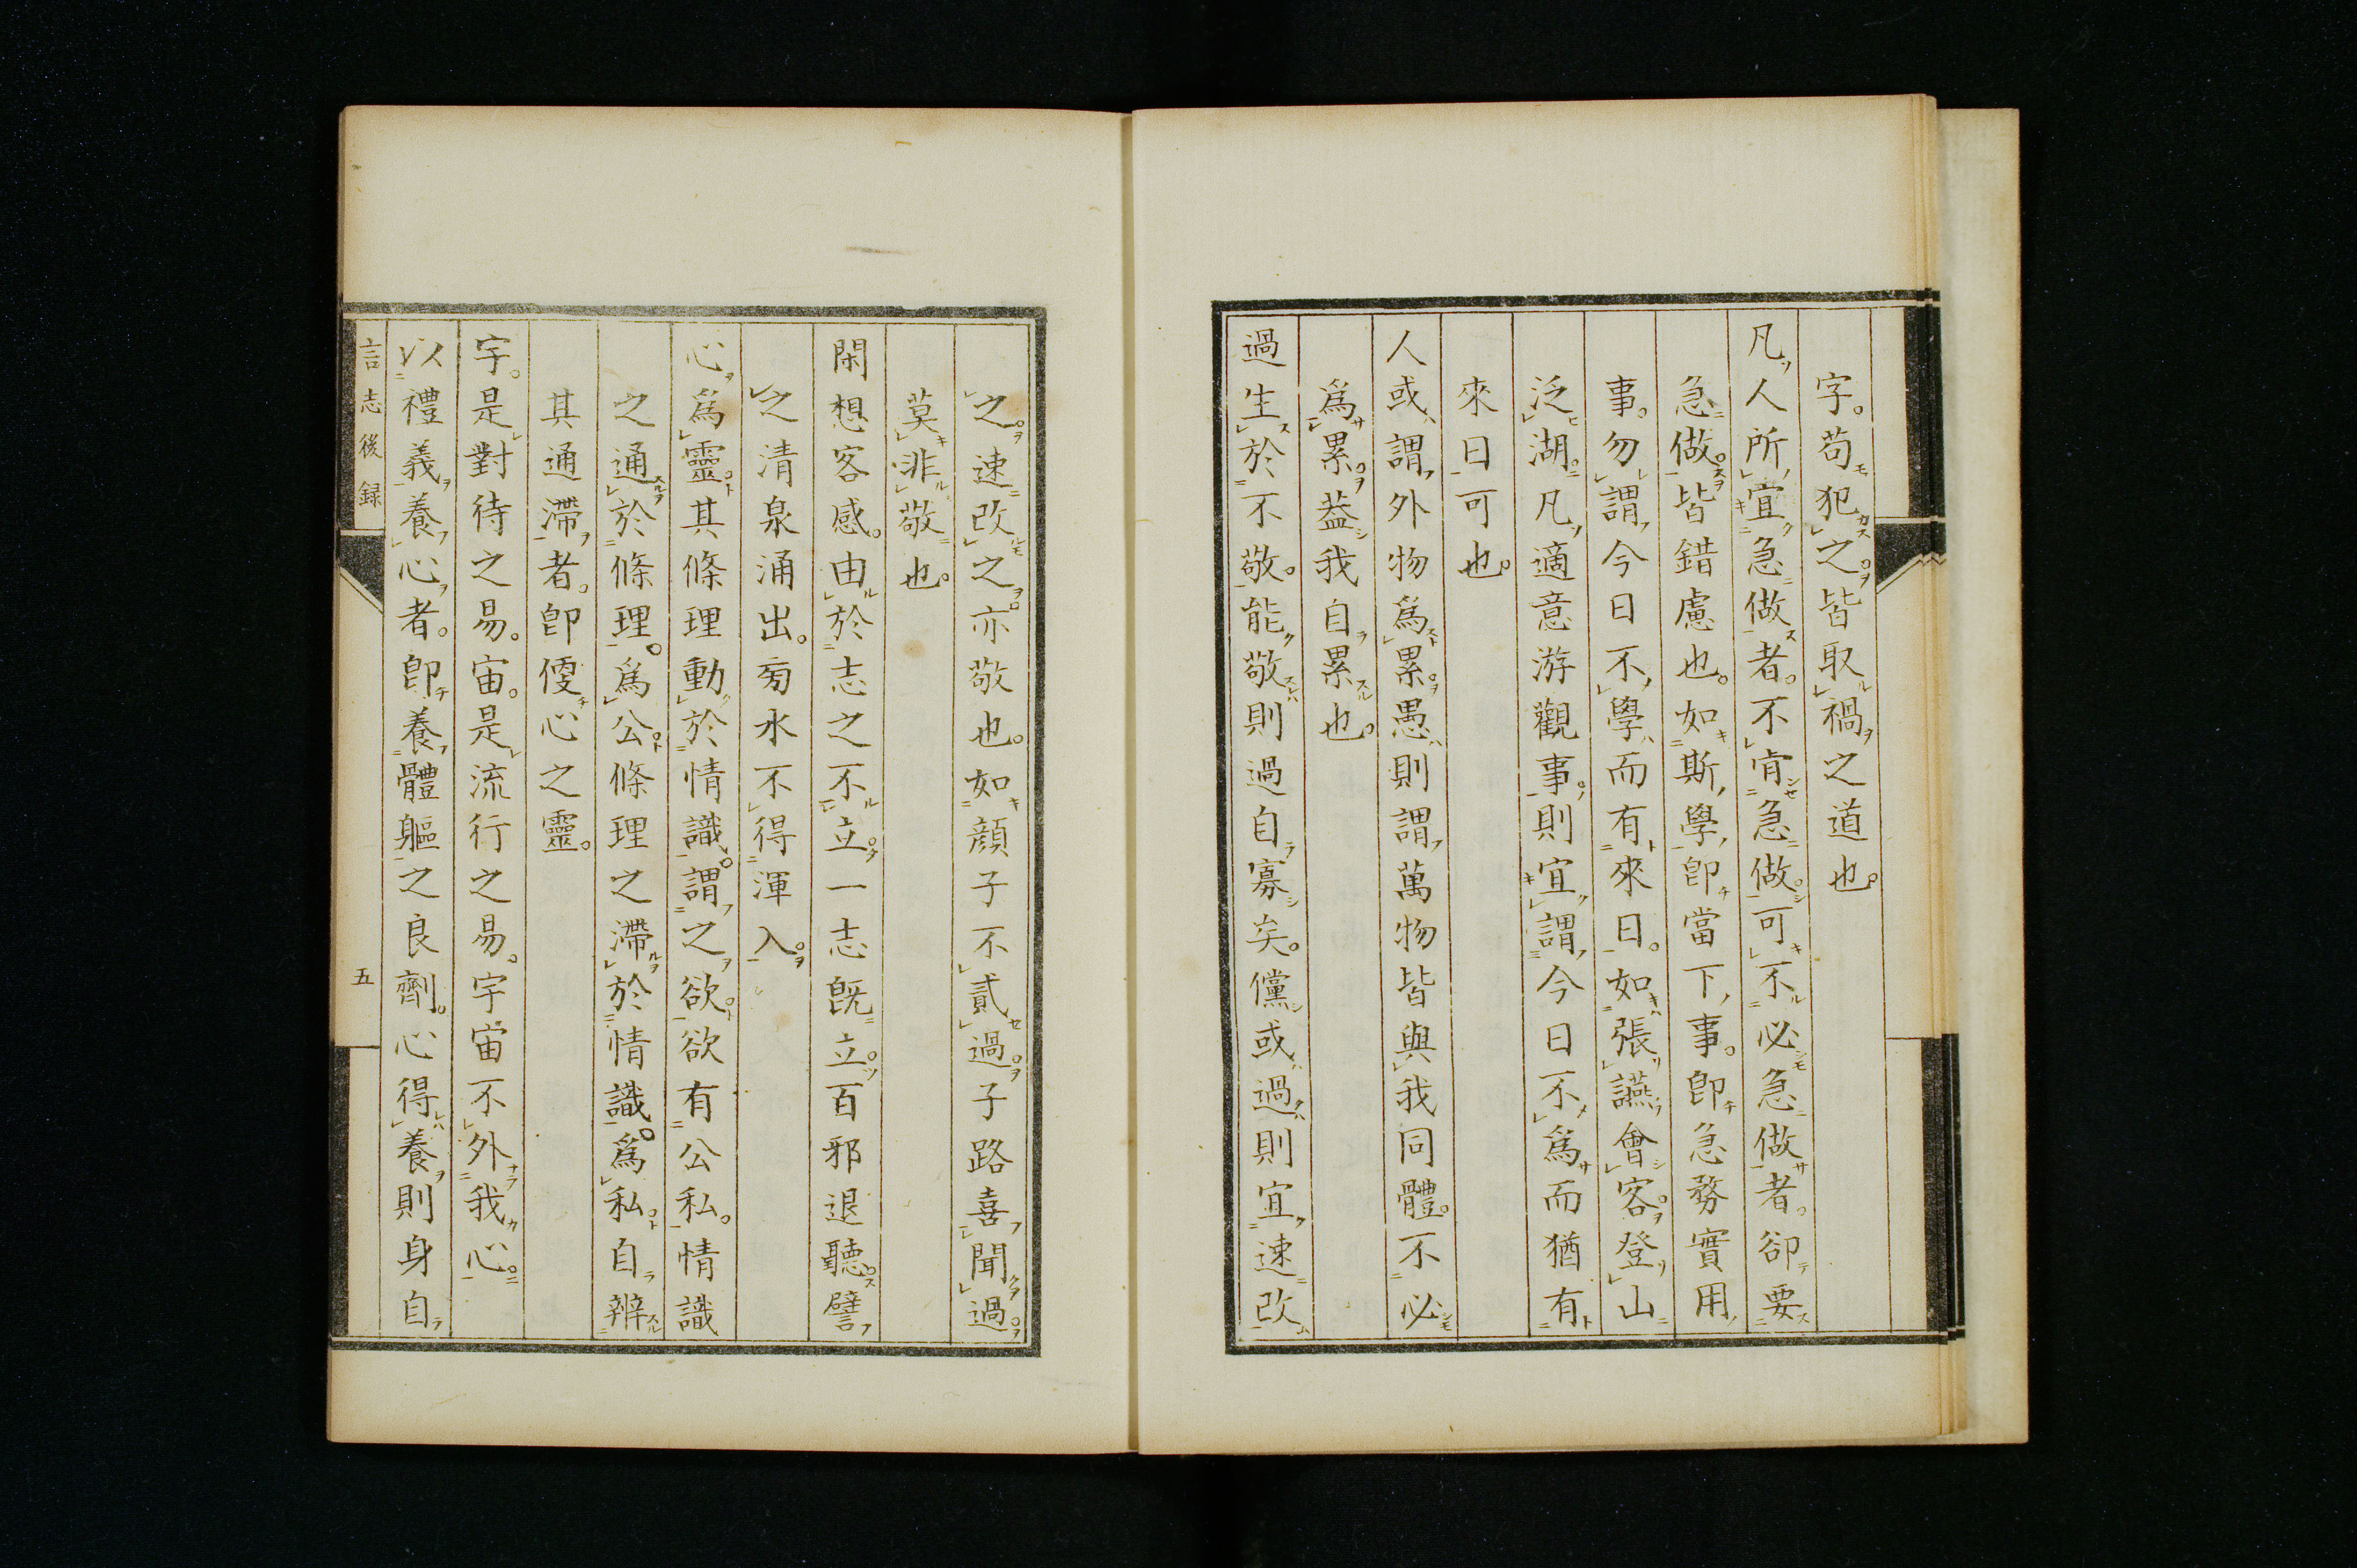 字。苟犯之。皆取禍之道也。
凡人所宜急做者。不肯急做。可不必急做者。卻要
急做。皆錯慮也。如斯學。卽當下事。卽急務實用
事。勿謂今日不學而有來日。如張讌會客。登山
泛湖。凡適意游觀事。則宜謂今日不爲而猶有
來日可也。
人或謂外物爲累。愚則謂萬物皆與我同體。不必
爲累。葢我自累也。
過生於不敬。能敬則過自寡矣。儻或過則宜速改
之。速改之。亦敬也。如顔子不貳過。子路喜聞過。
莫非敬也。
閑想客感。由於志之不立。一志旣立。百邪退聽。譬
之清泉涌出。旁水不得渾入。
心爲靈。其條理動於情識。謂之欲。欲有公私。情識
之通於條理。爲公。條理之滯於情識。爲私。自辨
其通滯者。卽便心之靈。
宇。是對待之易。宙。是流行之易。宇宙不外我心。
以禮義養心者。卽養體軀之良劑。心得養則身自
言志後録
五